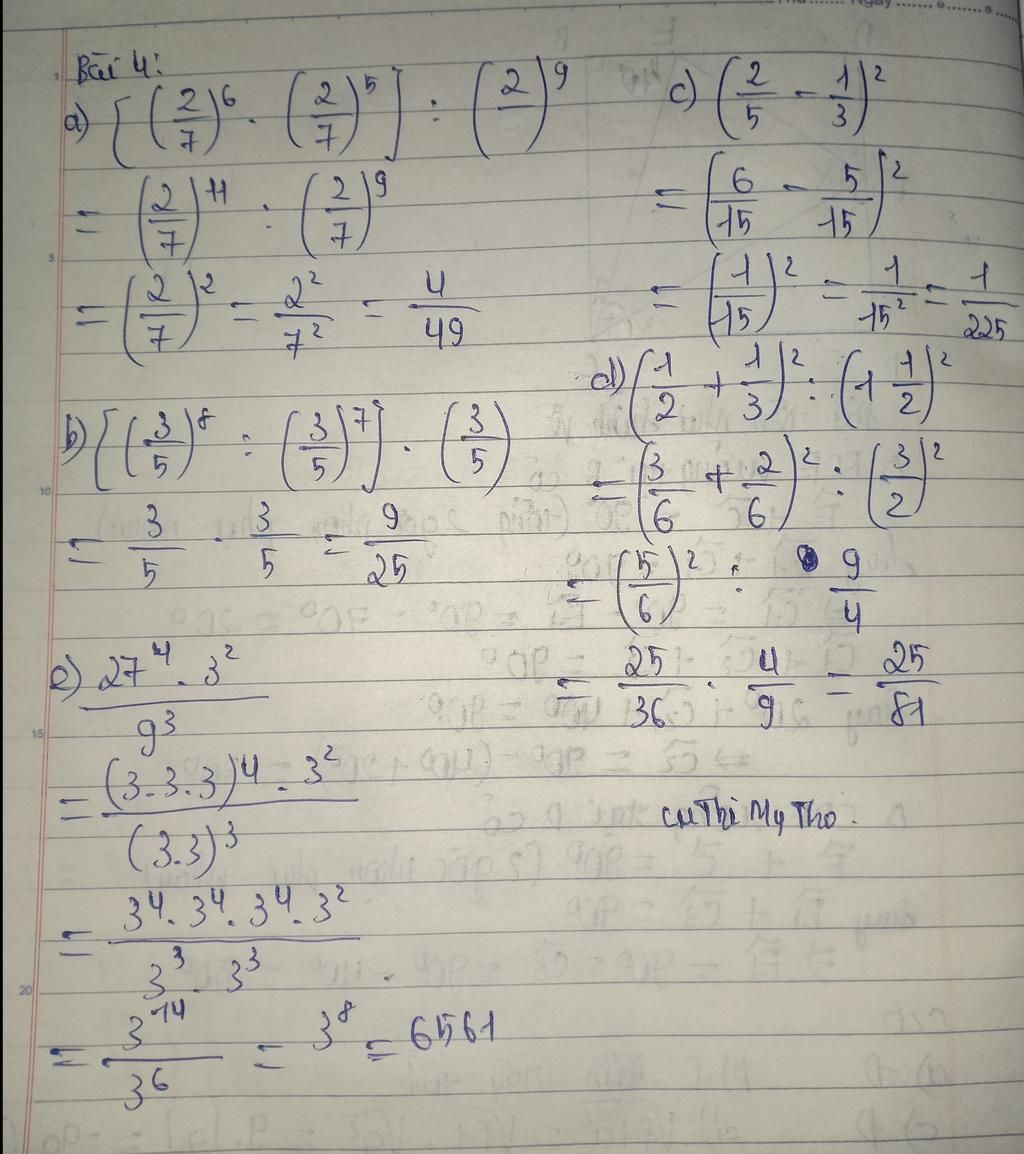 Bài 4:
a) [(2/7)^6 . (2/7)^5] : (2/ )^9
= (2/7)^11 : (2/7)^9
= (2/7)^2 = 2^2/7^2 = 4/49
b) [(3/5)^8 : (3/5)^7] . (3/5)
= 3/5 . 3/5 = 9/25
e) 27^4 . 3^2 / 9^3
= (3.3.3)^4 . 3^2 / (3.3)^3
= 3^4 . 3^4 . 3^4 . 3^2 / 3^3 . 3^3 .
= 3^14 / 3^6 = 3^8 = 6561
c) (2/5 - 1/3)^2
= (6/15 - 5/15)^2
= (1/15)^2 = 1/15^2 = 1/225
d) (1/2 + 1/3)^2 : (1 1/2)^2
= (3/6 + 2/6)^2 : (3/2)^2
= (5/6)^2 : 9/4
= 25/36 . 4/9 = 25/81
Cu Thi My Tho .
1
5
10
15
20